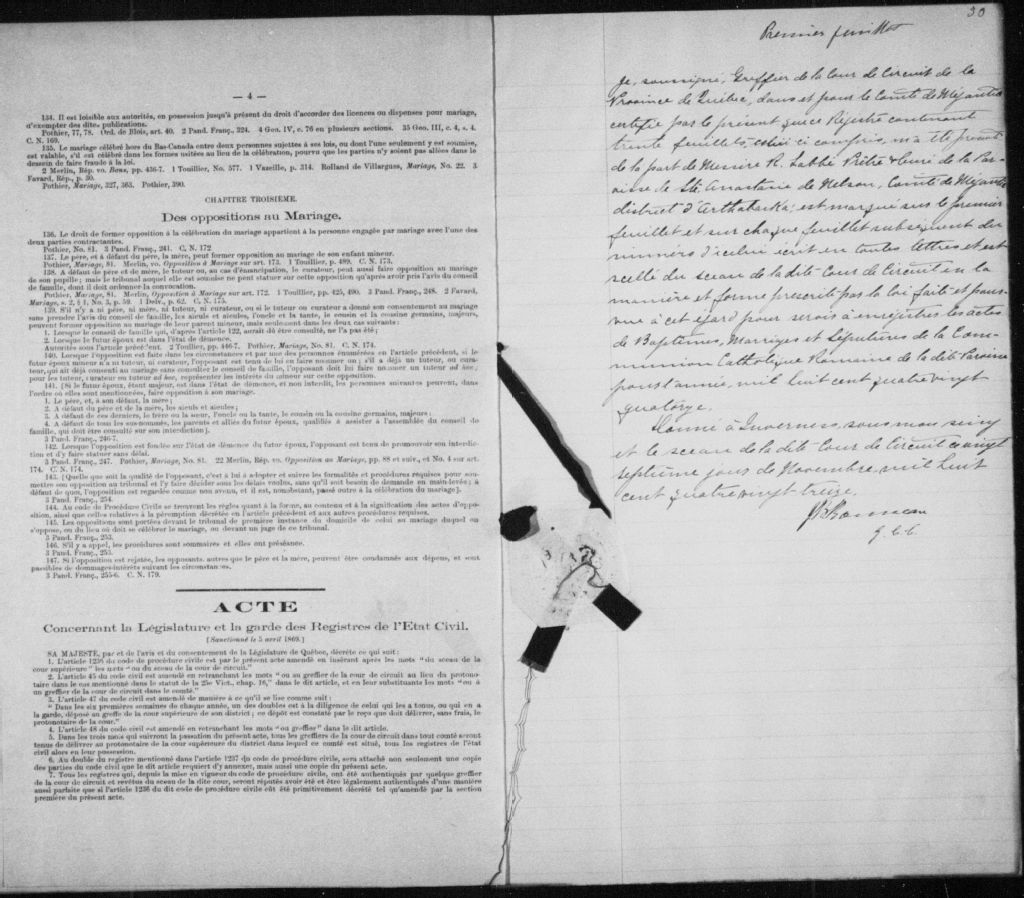 — 4 —
134. Il est loisible aux autorités, en possession jusqu'à présent du droit d'accorder des licences ou dispenses pour mariage,
d'exempter des dites publications.
Pothier, 77, 78. Ord. de Blois, art. 40. 2 Pand. Franç., 224. 4 Geo. IV, c. 76 en plusieurs sections. 35 Geo. III, c. 4, s. 4.
C. N. 169.
135. Le mariage célébré hors du Bas-Canada entre deux personnes sujettes à ses lois, ou dont l'une seulement y est soumise,
est valable, s'il est célébré dans les formes usitées au lieu de la célébration, pourvu que les parties n'y soient pas allées dans le
dessein de faire fraude à la loi.
2 Merlin, Rép. vo. Bans, pp. 436-7. 1 Touillier, No. 577. 1 Vazeille, p. 314. Rolland de Villargues, Mariage, No. 22. 3
Favard, Rép., p. 30.
Pothier, Mariage, 327, 363. Pothier, 390.
CHAPITRE TROISIEME.
Des oppositions au Mariage.
136. Le droit de former opposition à la célébration du mariage appartient à la personne engagée par mariage avec l'une des
deux parties contractantes.
Pothier, No. 81. 3 Pand. Franç., 241. C. N. 172
137. Le père, et à défaut du père, la mère, peut former opposition au mariage de son enfant mineur.
Pothier, Mariage, 81. Merlin, vo. Opposition à Mariage sur art. 173. 1 Touillier, p. 489. C. N. 173.
138. A défaut de père et de mère, le tuteur ou, au cas d'émancipation, le curateur, peut aussi faire opposition au mariage
de son pupille; mais le tribunal auquel elle est soumise ne peut statuer sur cette opposition qu'après avoir pris l'avis du conseil
de famille, dont il doit ordonner la convocation.
Pothier, Mariage, 81. Merlin, Opposition à Mariage sur art. 172. 1 Touillier, pp. 425, 490. 3 Pand. Franç., 248. 2 Favard,
Mariage, s. 2, § 1, No. 3, p. 59. 1 Delv., p. 62. C. N. 175.
139. S'il n'y a ni père, ni mère, ni tuteur, ni curateur, ou si le tuteur ou curateur a donné son consentement au mariage
sans prendre l'avis du conseil de famille, les aïeuls et aïeules, l'oncle et la tante, le cousin et la cousine germains, majeurs,
peuvent former opposition au mariage de leur parent mineur, mais seulement dans les deux cas suivants:
1. Lorsque le conseil de famille qui, d'après l'article 122, aurait dû être consulté, ne l'a pas été;
2. Lorsque le futur époux est dans l'état de démence.
Autorités sous l'article précédent. 2 Touillier, pp. 446-7. Pothier, Mariage, No. 81. C. N. 174.
140. Lorsque l'opposition est faite dans les circonstances et par une des personnes énumérées en l'article précédent, si le
futur époux mineur n'a ni tuteur, ni curateur, l'opposant est tenu de lui en faire nommer un; s'il a déjà un tuteur, ou cura-
teur, qui ait déjà consenti au mariage sans consulter le conseil de famille, l'opposant doit lui faire nommer un tuteur ad hoc;
pour les tuteur, curateur ou tuteur ad hoc, représenter les intérêts du mineur sur cette opposition.
141. [Si le futur époux, étant majeur, est dans l'état de démence, et non interdit, les personnes suivantes peuvent, dans
l'ordre où elles sont mentionnées, faire opposition à son mariage.
1. Le père, et, à son défaut, la mère;
2. A défaut du père et de la mère, les aïeuls et aïeules;
3. A défaut de ces derniers, le frère ou la sœur, l'oncle ou la tante, le cousin ou la cousine germains, majeurs;
4. A défaut de tous les susnommés, les parents et alliés du futur époux, qualifiés à assister à l'assemblée du conseil de
famille, qui doit être consulté sur son interdiction].
3 Pand. Franç., 246-7.
142. Lorsque l'opposition est fondée sur l'état de démence du futur époux, l'opposant est tenu de promouvoir son interdic-
tion et d'y faire statuer sans délai.
3 Pand. Franç., 247. Pothier, Mariage, No. 81. 22 Merlin, Rép. vo. Opposition au Mariage, pp. 88 et suiv., et No. 4 sur art.
174. C. N. 174.
143. [Quelle que soit la qualité de l'opposant, c'est à lui à adopter et suivre les formalités et procédures requises pour sou-
mettre son opposition au tribunal et l'y faire décider sous les délais voulus, sans qu'il soit besoin de demande en main-levée; à
défaut de quoi, l'opposition est regardée comme non avenu, et il est, nonobstant, passé outre à la célébration du mariage].
3 Pand. Franç., 254.
144. Au code de Procédure Civile se trouvent les règles quant à la forme, au contenu et à la signification des actes d'oppo-
sition, ainsi que celles relatives à la péremption décrétée en l'article précédent et aux autres procédures requises.
145. Les oppositions sont portées devant le tribunal de première instance du domicile de celui au mariage duquel on
s'oppose, ou du lieu où doit se célébrer le mariage, ou devant un juge de ce tribunal.
3 Pand. Franç., 253.
146. S'il y a appel, les procédures sont sommaires et elles ont préséance.
3 Pand. Franç., 253.
147. Si l'opposition est rejetée, les opposants autres que le père et la mère, peuvent être condamnés aux dépens, et sont
passibles de dommages-intérêts suivant les circonstances.
3 Pand. Franç., 255-6. C. N. 179.
ACTE
Concernant la Législature et la garde des Registres de l'Etat Civil.
[Sanctionné le 5 avril 1869.]
SA MAJESTÉ, par et de l'avis et du consentement de la Législature de Québec, décrète ce qui suit:
1. L'article 1236 du code de procédure civile est par le présent acte amendé en insérant après les mots "du sceau de la
cour supérieure" les mots "ou du sceau de la cour de circuit."
2. L'article 45 du code civil est amendé en retranchant les mots "ou au greffier de la cour de circuit au lieu du protono-
taire dans le cas mentionné dans le statut de la 25e Vict., chap. 16," dans le dit article, et en leur substituants les mots "ou à
un greffier de la cour de circuit dans le comté."
3. L'article 47 du code civil est amendé de manière à ce qu'il se lise comme suit:
"Dans les six premières semaines de chaque année, un des doubles est à la diligence de celui qui les a tenus, ou qui en a
la garde, déposé au greffe de la cour supérieure de son district; ce dépôt est constaté par le reçu que doit délivrer, sans frais, le
protonotaire de la cour."
4. L'article 48 du code civil est amendé en retranchant les mots "ou greffier" dans le dit article.
5. Dans les trois mois qui suivront la passation du présent acte, tous les greffiers de la cour de circuit dans tout comté seront
tenus de délivrer au protonotaire de la cour supérieure du district dans lequel ce comté est situé, tous les registres de l'état
civil alors en leur possession.
6. Au double du registre mentionné dans l'article 1237 du code de procédure civile, sera attaché non seulement une copie
des parties du code civil que le dit article requiert d'y annexer, mais aussi une copie du présent acte.
7. Tous les registres qui, depuis la mise en vigueur du code de procédure civile, ont été authentiqués par quelque greffier
de la cour de circuit et revêtus du sceau de la dite cour, seront réputés avoir été et être légalement authentiqués d'une manière
aussi parfaite que si l'article 1236 du dit code de procédure civile eût été primitivement décrété tel qu'amendé par la section
première du présent acte.
30
Premier feuillet
Je, soussigné, Greffier de la Cour de Circuit de la
Province de Québec, dans et pour le Comté de Mégantic
certifie par le présent que ce Régistre contenant
trente feuillets, celui ci compris, m'a été présenté
de la part de Messire R. Labbé Prêtre & Curé de la Pa-
roisse de Ste Anastasie de Nelson, Comté de Mégantic
district d'Arthabaska; est marqué sur le premier
feuillet et sur chaque feuillet subséquent du
numéro d'icelui écrit en toutes lettres et est
scellé du sceau de la dite Cour de Circuit en la
manière et forme prescrite par la loi faite et pour-
vue à cet égard pour servir à enregistrer les actes
de Baptêmes, Marriages et Sépultures de la Com-
munion Catholique Romaine de la dite Paroisse
pour l'année, mil huit cent quatre vingt
quatorze.
Donné à Inverness, sous mon seing
et le sceau de la dite Cour de Circuit ce vingt
septième jour de Novembre mil huit
cent quatre vingt treize.
G. C. C.